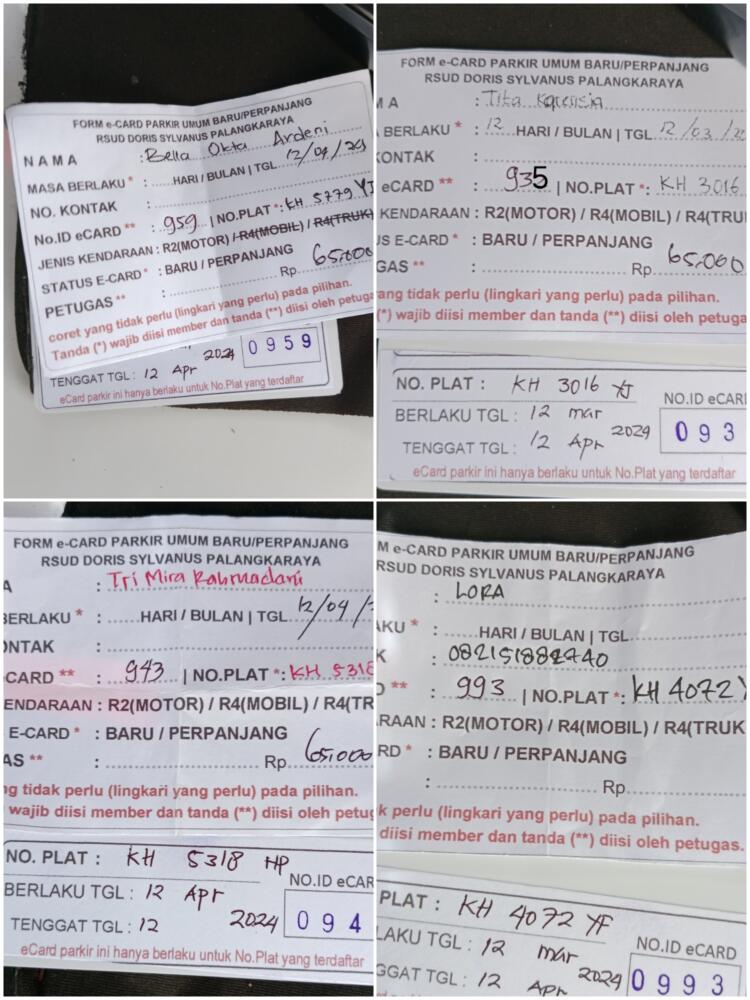 FORM e-CARD PARKIR UMUM BARU/PERPANJANG
RSUD DORIS SYLVANUS PALANGKARAYA
NAMA : Bella Okta Ardeni
MASA BERLAKU * : ......HARI / BULAN | TGL 12/04/24
NO. KONTAK :
No.ID eCARD ** : 959 | NO.PLAT *: KH 5779 YJ
JENIS KENDARAAN : R2(MOTOR) / R4(MOBIL) / R4(TRUK)
STATUS E-CARD * : BARU / PERPANJANG
PETUGAS ** : Rp 65.000
coret yang tidak perlu (lingkari yang perlu) pada pilihan.
Tanda (*) wajib diisi member dan tanda (**) diisi oleh petuga
TENGGAT TGL : 12 Apr 2024 0959
eCard parkir ini hanya berlaku untuk No.Plat yang terdaftar
FORM e-CARD PARKIR UMUM BARU/PERPANJANG
RSUD DORIS SYLVANUS PALANGKARAYA
M A : Tita
BERLAKU * : 12 HARI / BULAN | TGL 12/03/
KONTAK :
eCARD ** : 935 | NO.PLAT *: KH 3016
KENDARAAN : R2(MOTOR) / R4(MOBIL) / R4(TRU
US E-CARD * : BARU / PERPANJANG
GAS ** : Rp. 65.000
ang tidak perlu (lingkari yang perlu) pada pilihan.
(*) wajib diisi member dan tanda (**) diisi oleh petuga
NO. PLAT : KH 3016 YJ
NO.ID eCARD
BERLAKU TGL : 12 mar
TENGGAT TGL : 12 Apr 2024 093
eCard parkir ini hanya berlaku untuk No.Plat yang terdaftar
FORM e-CARD PARKIR UMUM BARU/PERPANJANG
RSUD DORIS SYLVANUS PALANGKARAYA
A : Tri Mira Rahmadani
BERLAKU * : ......HARI / BULAN | TGL 12/04/
ONTAK :
CARD ** : 943 | NO.PLAT *: KH 5318
ENDARAAN : R2(MOTOR) / R4(MOBIL) / R4(TR
E-CARD * : BARU / PERPANJANG
AS ** : Rp 65.000
ng tidak perlu (lingkari yang perlu) pada pilihan.
wajib diisi member dan tanda (**) diisi oleh petug
NO. PLAT : KH 5318 HP
NO.ID eCAR
BERLAKU TGL : 12 Apr
TENGGAT TGL : 12 2024 094
eCard parkir ini hanya berlaku untuk No.Plat yang terdaftar
M e-CARD PARKIR UMUM BARU/PERPANJANG
RSUD DORIS SYLVANUS PALANGKARAYA
: LORA
AKU * : ......HARI / BULAN | TGL
K : 082151882740
D ** : 993 | NO.PLAT *: KH 4072 Y
RAAN : R2(MOTOR) / R4(MOBIL) / R4(TRUK
RD * : BARU / PERPANJANG
: Rp
k perlu (lingkari yang perlu) pada pilihan.
diisi member dan tanda (**) diisi oleh petugas.
PLAT : KH 4072 YF
LAKU TGL : 12 mar
NO.ID eCARD
GGAT TGL : 12 Apr 2024 0993